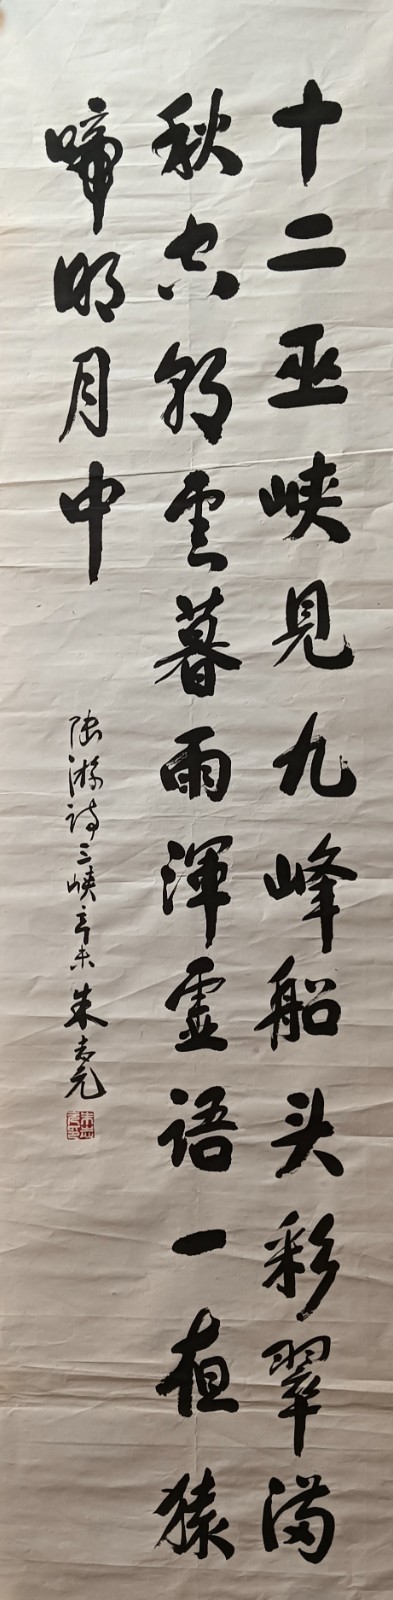 十二巫峡見九峰船头彩翠满
秋空朝雲暮雨渾虚語一夜猿
啼明月中
陆游诗三峡辛未朱志元